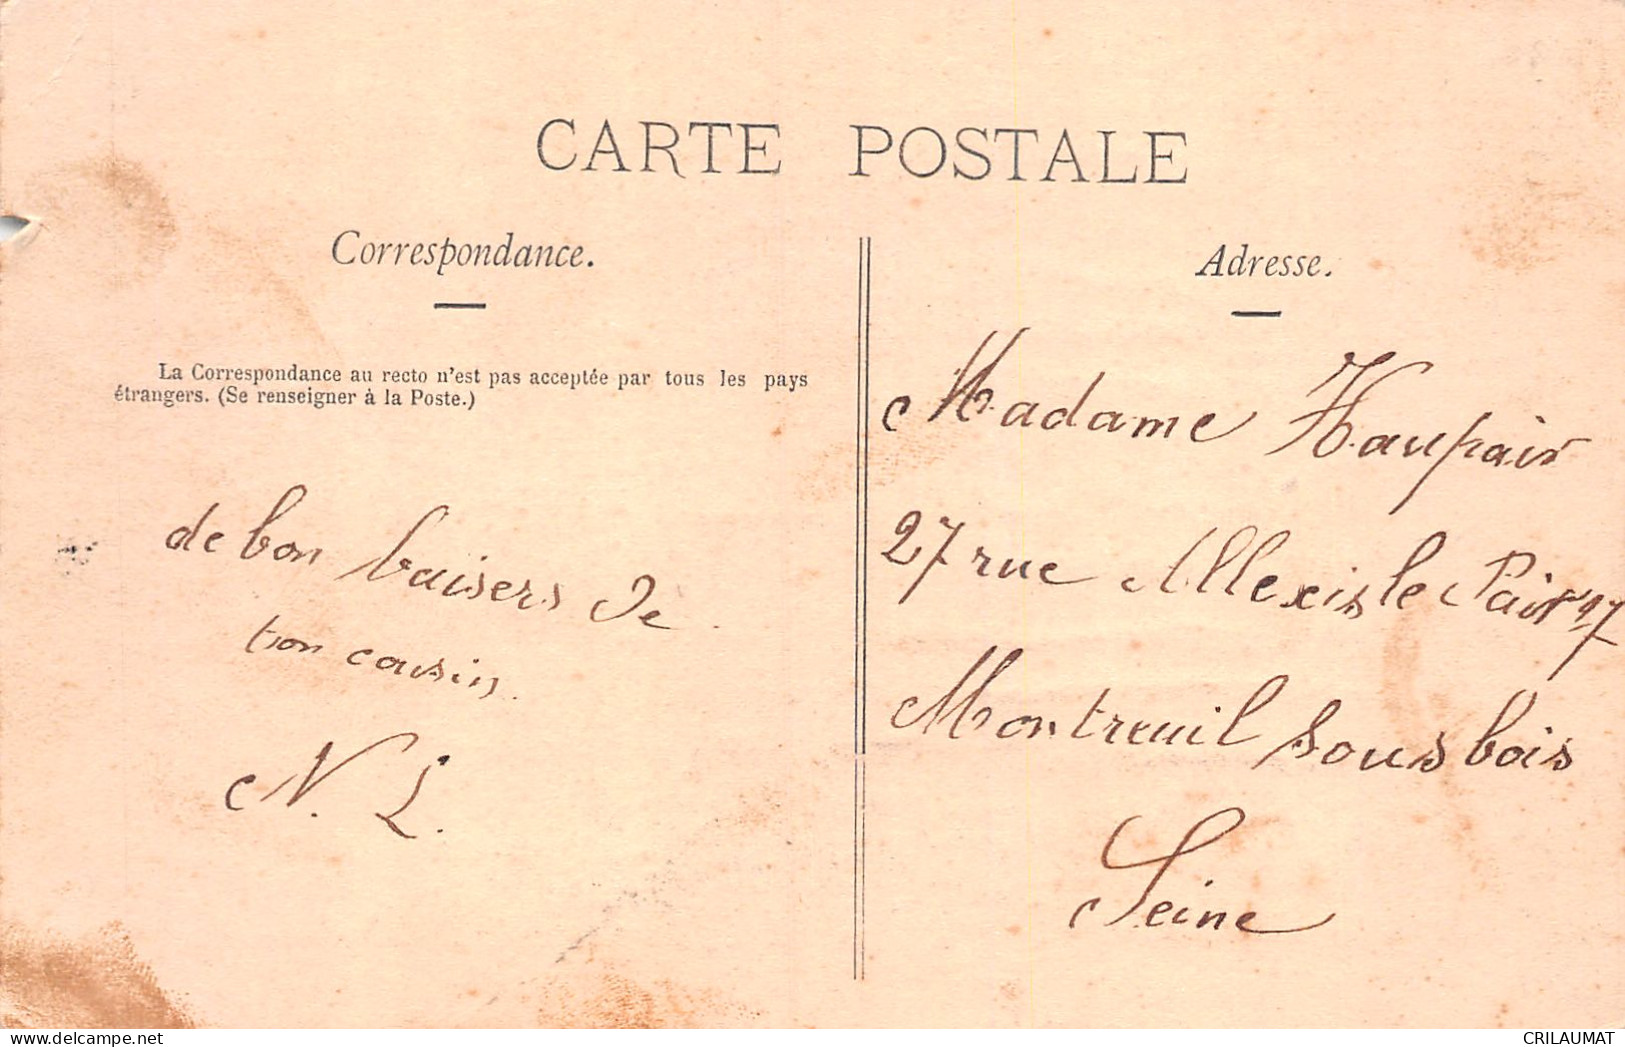 CARTE POSTALE
Correspondance.
La Correspondance au recto n'est pas acceptée par tous les pays
étrangers. (Se renseigner à la Poste.)
de bon baisers de
ton cousin.
N. L.
Adresse.
Madame Haupair
27 rue Allexis le Pair 27
Montreuil sous bois
Seine
CRILAUMAT